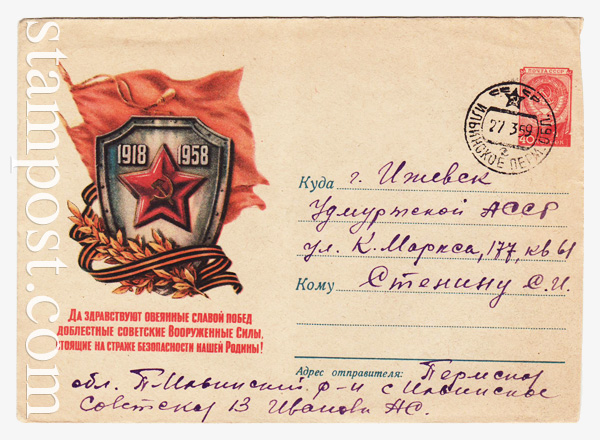 stampost.com
1918 1958
Да здравствуют овеянные славой побед
доблестные советские Вооруженные Силы,
стоящие на страже безопасности нашей Родины!
ПОЧТА СССР
СССР
ИЛЬИНСКОЕ ПЕРМ. ОБЛ.
27 3 59
Куда г. Ижевск
Удмуртской АССР
ул. К. Маркса, 177, кв 61
Кому Стенину С.И.
Адрес отправителя: Пермская
обл. П-Ильинский р-н с Ильинское
Советская 13 Иванова